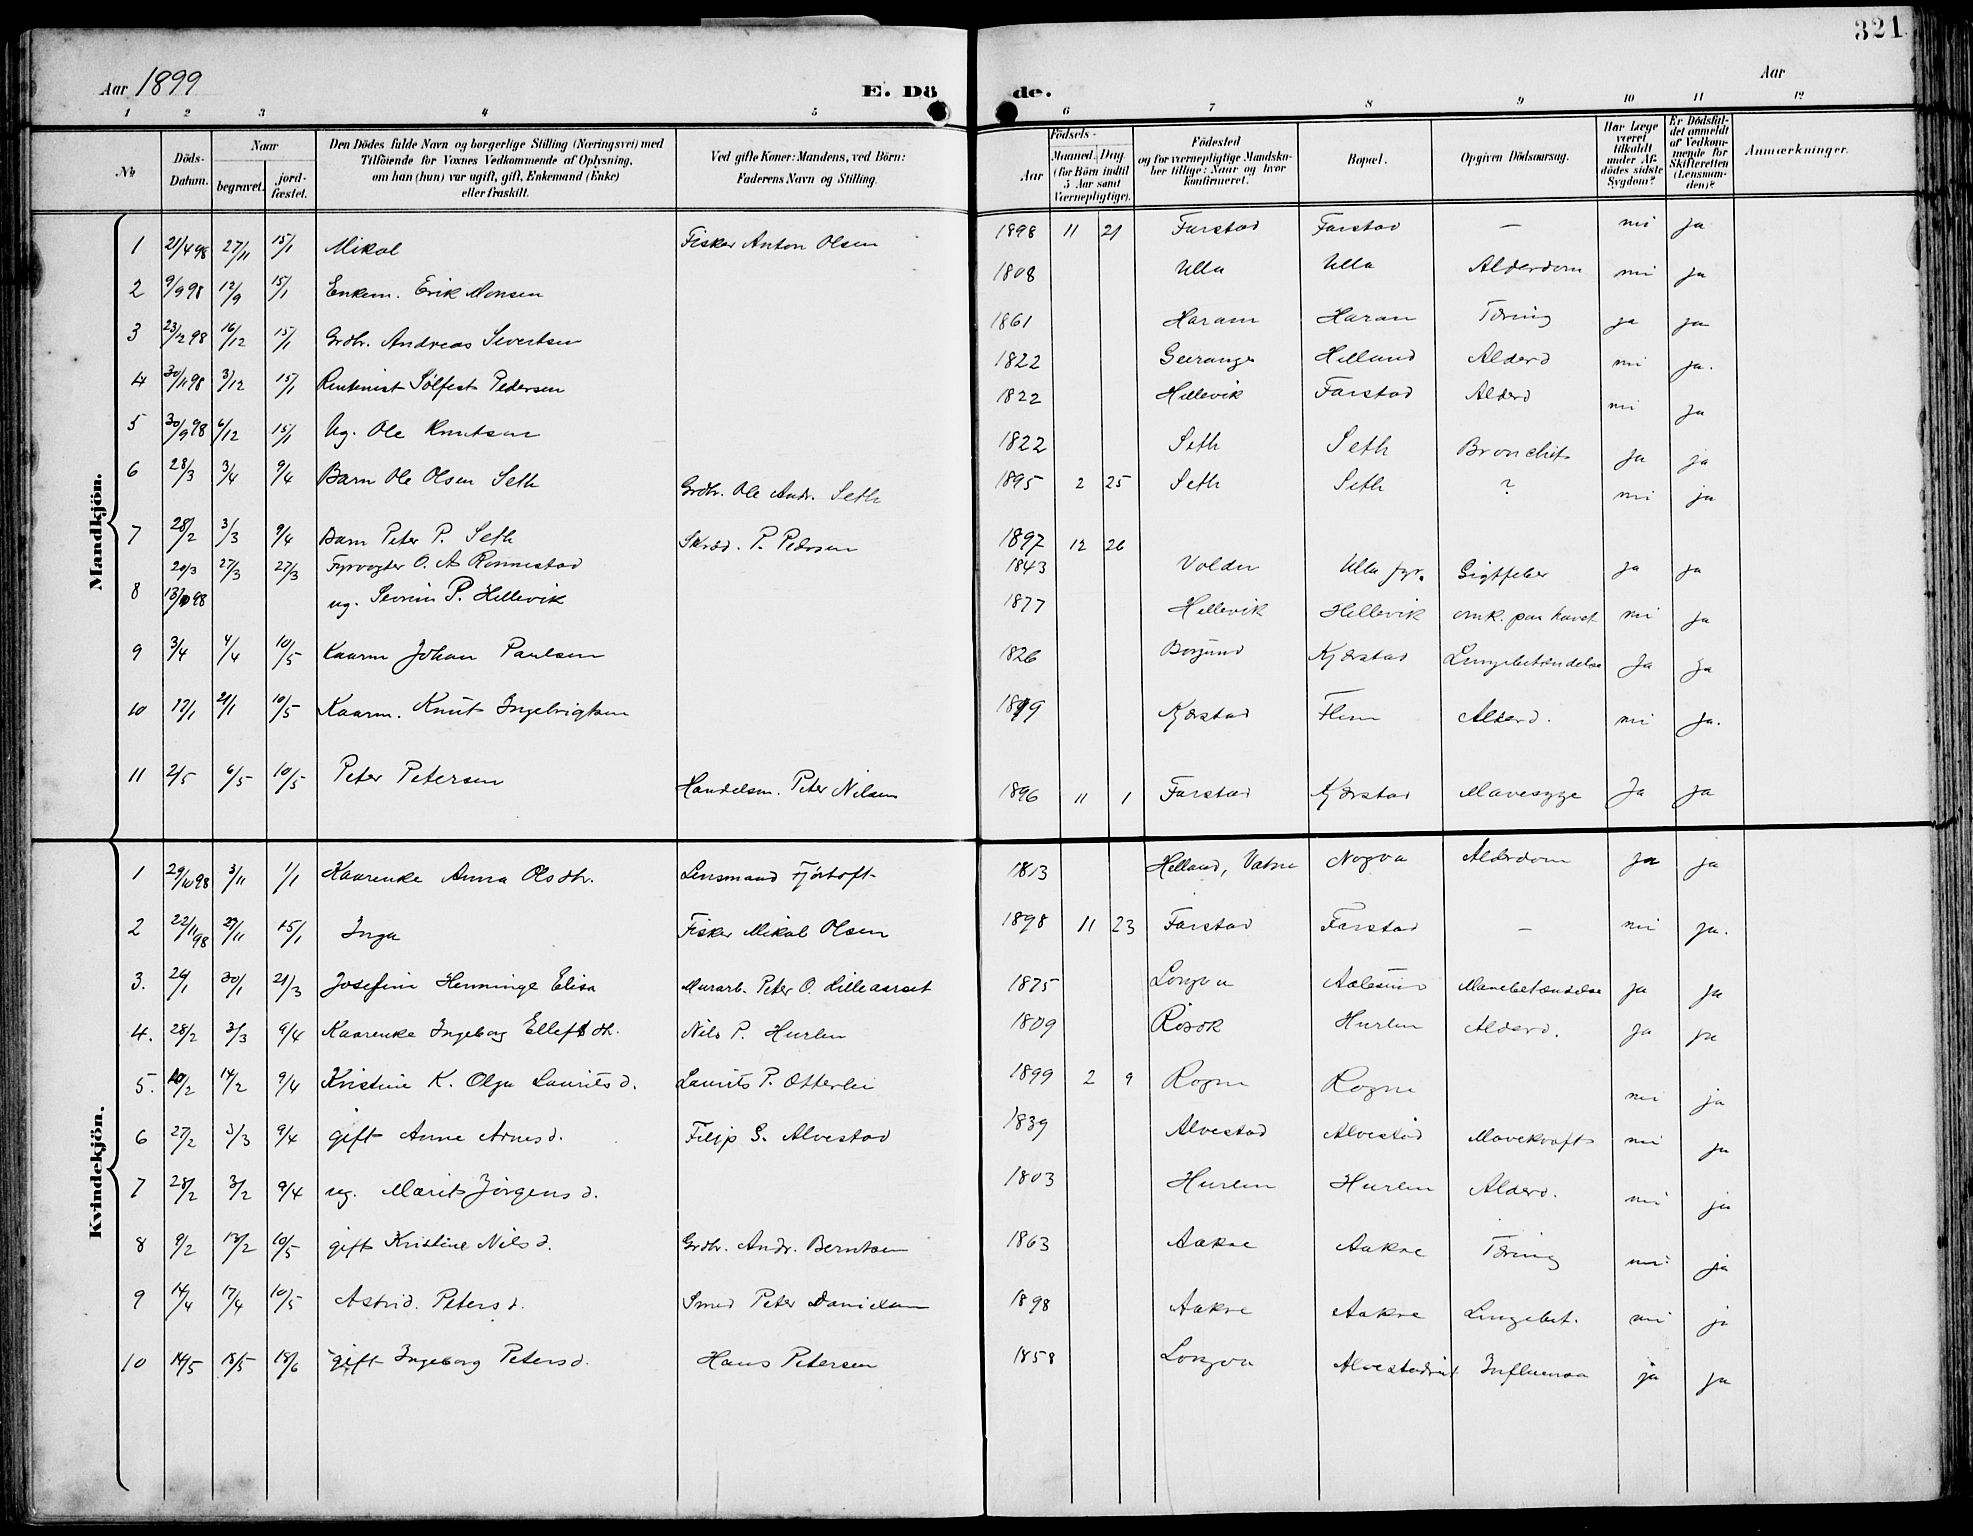 321
Aar 1899 E. Dö de. Aar
1 2 3 4 5 6 7 8 9 10 11 12
No Döds-Datum. Naar begravet. jordfæstet. Den Dödes fulde Navn og borgerlige Stilling (Næringsvei) med Tilföiende for Voxnes Vedkommende af Oplysning, om han (hun) var ugift, gift, Enkemand (Enke) eller fraskilt. Ved gifte Koner: Mandens, ved Börn: Faderens Navn og Stilling. Födsels- Aar Maaned. Dag (for Börn indtil 5 Aar samt Værnepligtige). Födested og for værnepligtige Mandskaber tillige: Naar og hvor konfirmeret. Bopæl. Opgiven Dödsaarsag. Har Læge været tilkaldt under Afdödes sidste Sygdom? Er Dödsfaldet anmeldt af Vedkommende for Skifteretten (Lensmanden)? Anmærkninger.
Mandkjön.
1 21/4 98 27/11 15/1 Mikal Fisker Anton Olsen 1898 11 21 Farstad Farstad — nei ja
2 9/9 98 12/9 15/1 Enkem. Erik Monsen 1808 Ulla Ulla Alderdom nei ja
3 23/12 98 16/12 15/1 Grdbr. Andreas Sivertsen 1861 Haram Haram Tæring ja ja
4 30/11 98 3/12 15/1 Rentenist Sölfest Pedersen 1822 Geiranger Helland Alderd nei ja.
5 30/9 98 6/12 15/1 Ug. Ole Knutsen 1822 Hellevik Farstad Alderd nei ja
1822 Seth Seth Bronchit ja ja
6 28/3 3/4 9/4 Barn Ole Olsen Seth Grdbr. Ole Andr. Seth 1895 2 25 Seth Seth ? nei ja
7 28/2 3/3 9/4 Barn Peter P. Seth Skræd. P. Pedersen 1897 12 26
20/3 27/3 27/3 Fyrvogter O. A. Rönnestad 1843 Volden Ulla fyr. Gigtfeber ja ja
8 13/10 98 ug. Severin P. Hellevik 1877 Hellevik Hellevik omk. paa havet nei ja
9 3/4 4/4 10/5 Kaarm Johan Paulsen 1826 Borgund Kjærstad Lungebetændelse ja ja
10 17/1 21/1 10/5 Kaarm. Knut Ingebrigtsen 1819 Kjærstad Flem Alderd. nei ja.
11 2/5 6/5 10/5 Peter Petersen Handelsm. Peter Nilsen 1896 11 1 Farstad Kjærstad Mavesyge Ja ja
Kvindekjön.
1 29/10 98 3/11 1/1 Kaarenke Anna Olsdtr. Lensmand Fjörtoft 1813 Helland, Vatne Nogva Alderdom ja ja
2 22/11 98 27/11 15/1 Inga Fisker Mikal Olsen 1898 11 23 Farstad Farstad — nei ja.
3. 26/1 30/1 21/3 Josefine Henninge Elisa Murarb. Peter O. Lilleaarset 1875 Longva Aalesund Mavebetændelse ja ja
4. 28/2 3/3 9/4 Kaarenke Ingeborg Elleftdtr. Nils P. Hurlen 1809 Rösok Hurlen Alderd. ja ja
5. 10/2 14/2 9/4 Kristine K. Olga Lauritsd. Laurits P. Otterlei 1899 2 9 Rogne Rogne nei ja
6 27/2 3/3 9/4 gift Anne Arnesd. Filip S. Alvestad 1839 Alvestad Alvestad Mavekræft nei ja
7 28/2 3/2 9/4 ug. Marit Jörgensd. 1803 Hurlen Hurlen Alderd. nei ja
8 9/2 13/2 10/5 gift Kristine Nilsd. Grdbr. Andr. Berntsen 1863 Aakre Aakre Tæring nei ja
9 14/4 17/4 10/5 Astrid. Petersd. Smed Peter Danielsen 1898 Aakre Aakre Lungebet. nei ja
10 14/5 18/5 18/6 gift Ingeborg Petersd. Hans Petersen 1858 Longva Influensa ja ja